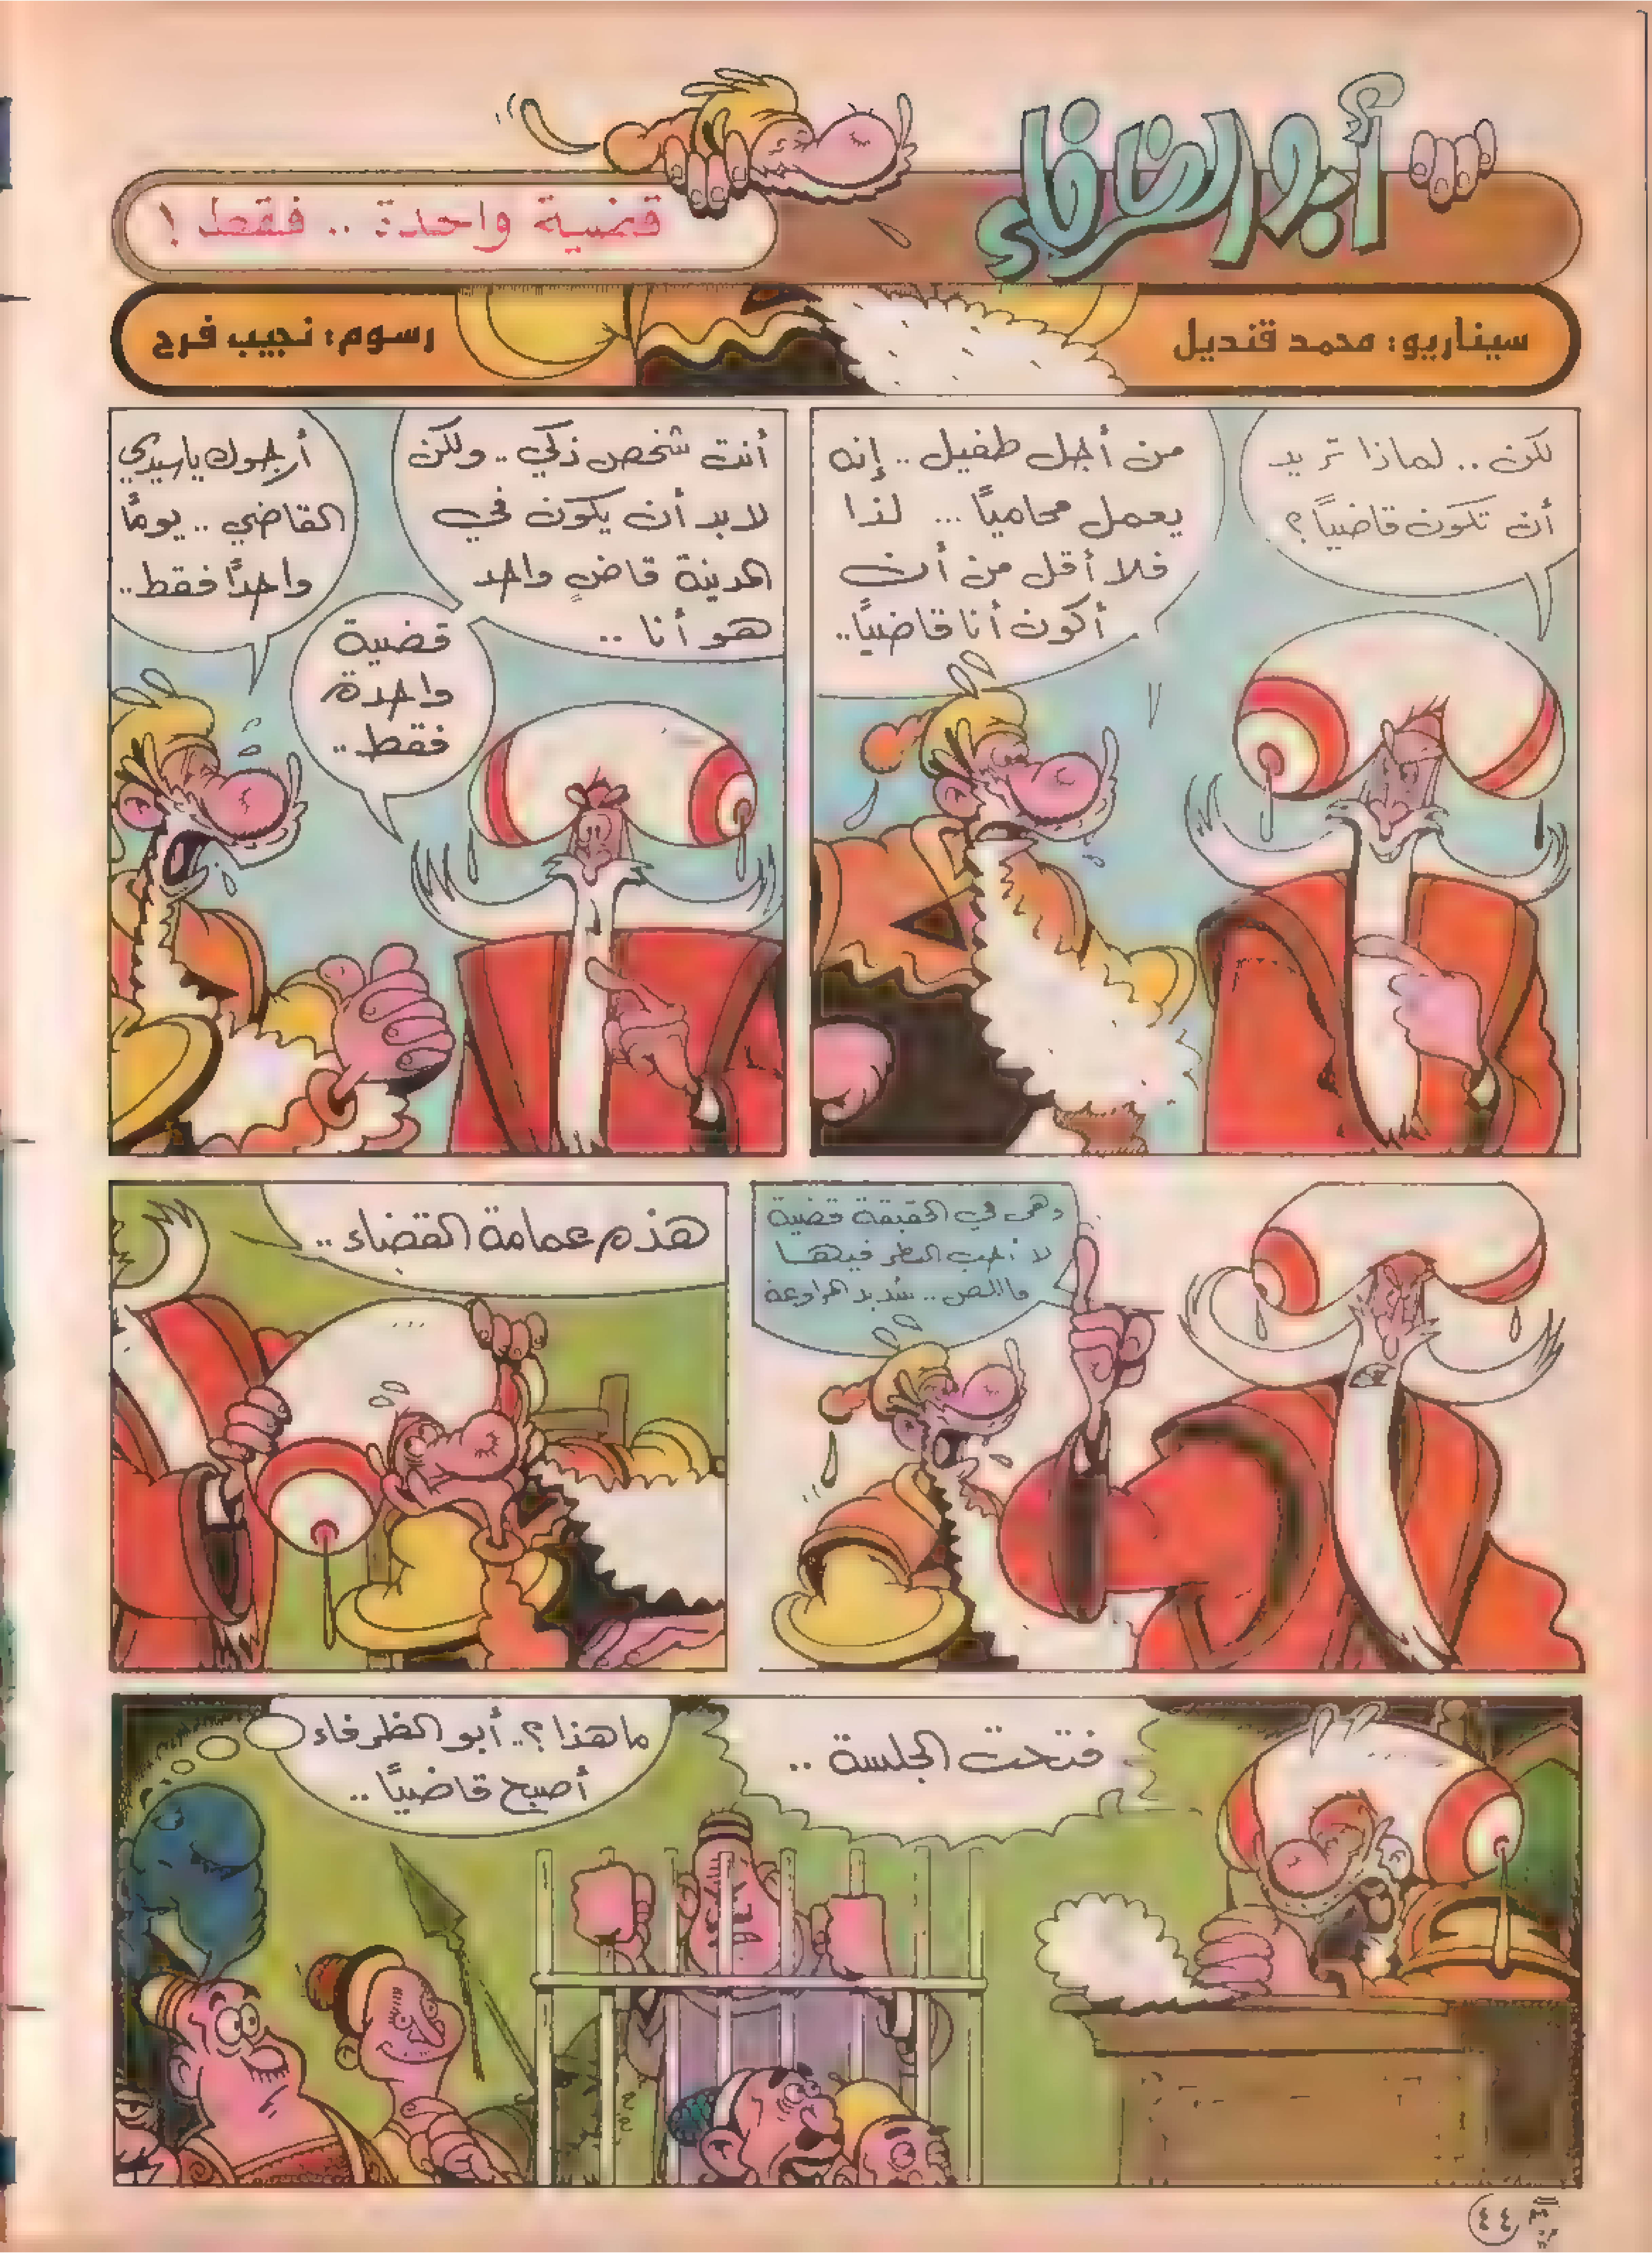 أبو الظرفاء
قضية واحدة .. فقط !
سيناريو: محمد قنديل
رسوم: نجيب فرح
لكن .. لماذا تريد
أن تكون قاضياً؟
من أجل طفيل .. إنه
يعمل محامياً ... لذا
فلا أقل من أن
أكون أنا قاضياً..
أنت شخص ذكي .. ولكن
لابد أن يكون في
المدينة قاضٍ واحد
هو أنا ..
أرجوك ياسيدي
القاضي .. يوماً
واحداً فقط ..
قضية
واحدة
فقط ..
وهى في الحقيقة قضية
لا أحب النظر فيها
فاللص .. شديد المراوغة
هذه عمامة القضاء ..
فتحت الجلسة ..
ما هذا ؟.. أبو الظرفاء
أصبح قاضياً ..
٤٤